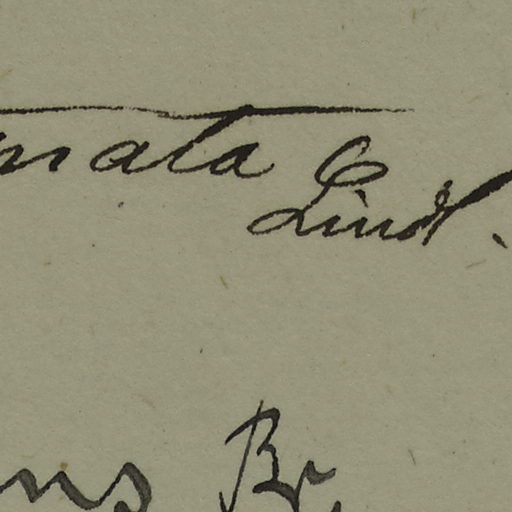 nata
Lind.
ns Br.